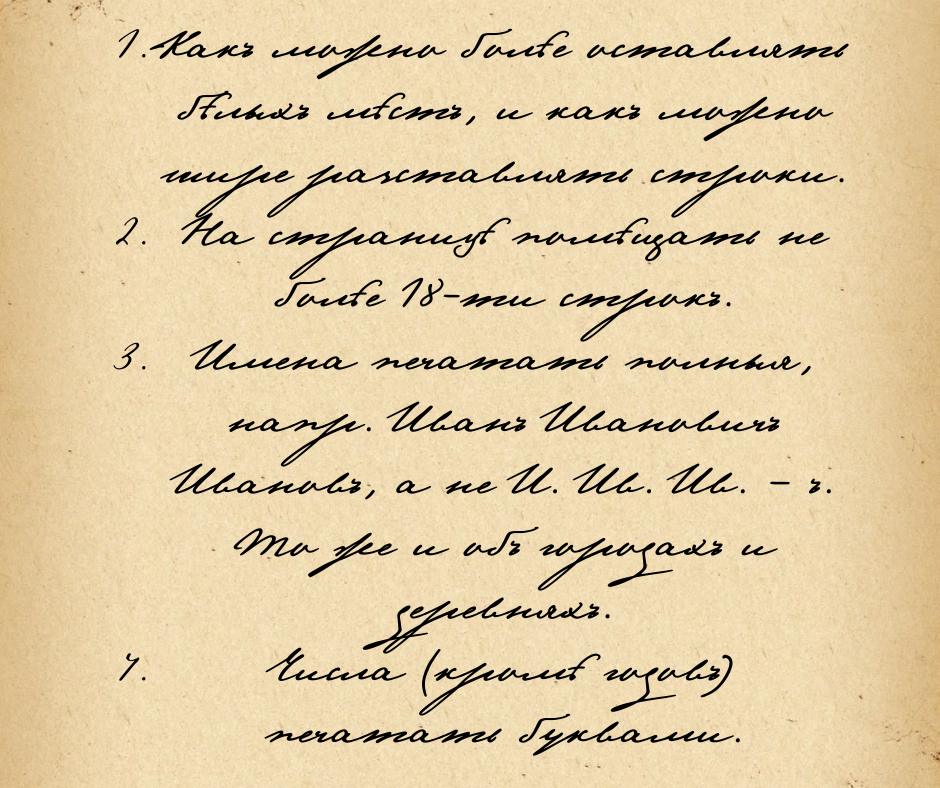 1. Какъ можно болѣе оставлять
бѣлыхъ мѣстъ, и какъ можно
шире разставлять строки.
2. На страницѣ помѣщать не
болѣе 18-ти строкъ.
3. Имена печатать полныя,
напр. Иванъ Ивановичъ
Ивановъ, а не И. Ив. Ив. – ъ.
То же и объ городахъ и
деревняхъ.
4. Числа (кромѣ годовъ)
печатать буквами.